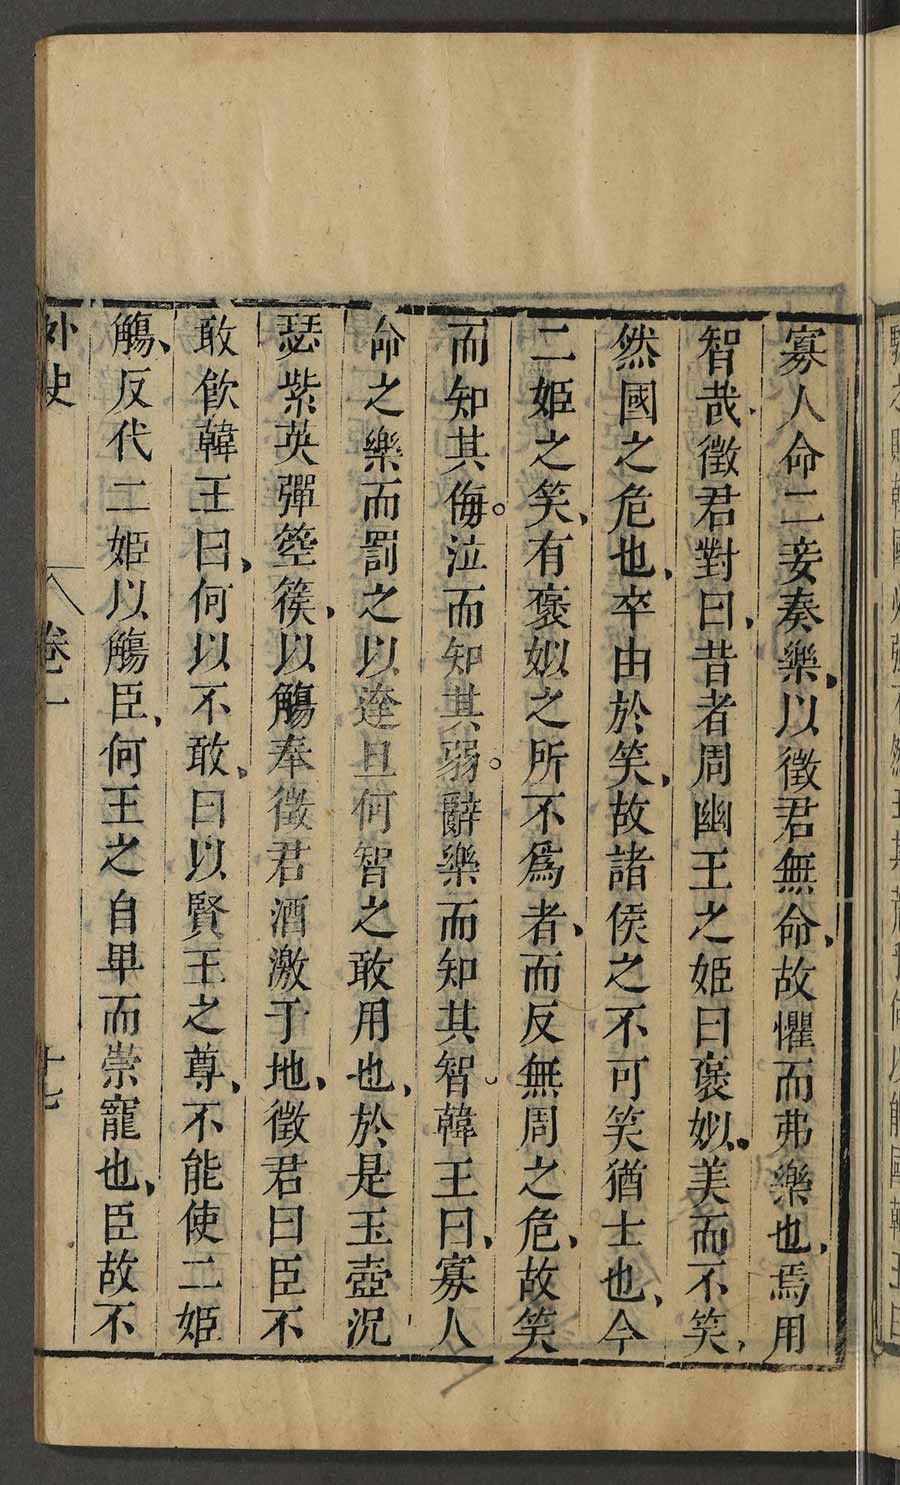 寡人命二妾奏樂以徵君無命故懼而弗樂也焉用
智哉徵君對曰昔者周幽王之姬曰褒姒美而不笑
然國之危也卒由於笑故諸侯之不可笑猶士也今
二姬之笑有褒姒之所不為者而反無周之危故笑
而知其侮泣而知其弱辭樂而知其智韓王曰寡人
命之樂而罰之以達旦何智之敢用也於是玉壺況
瑟紫英彈箜篌以觴奉徵君酒激于地徵君曰臣不
敢飲韓王曰何以不敢曰以賢王之尊不能使二姬
觴反代二姬以觴臣何王之自卑而崇寵也臣故不
外史 卷一 十七